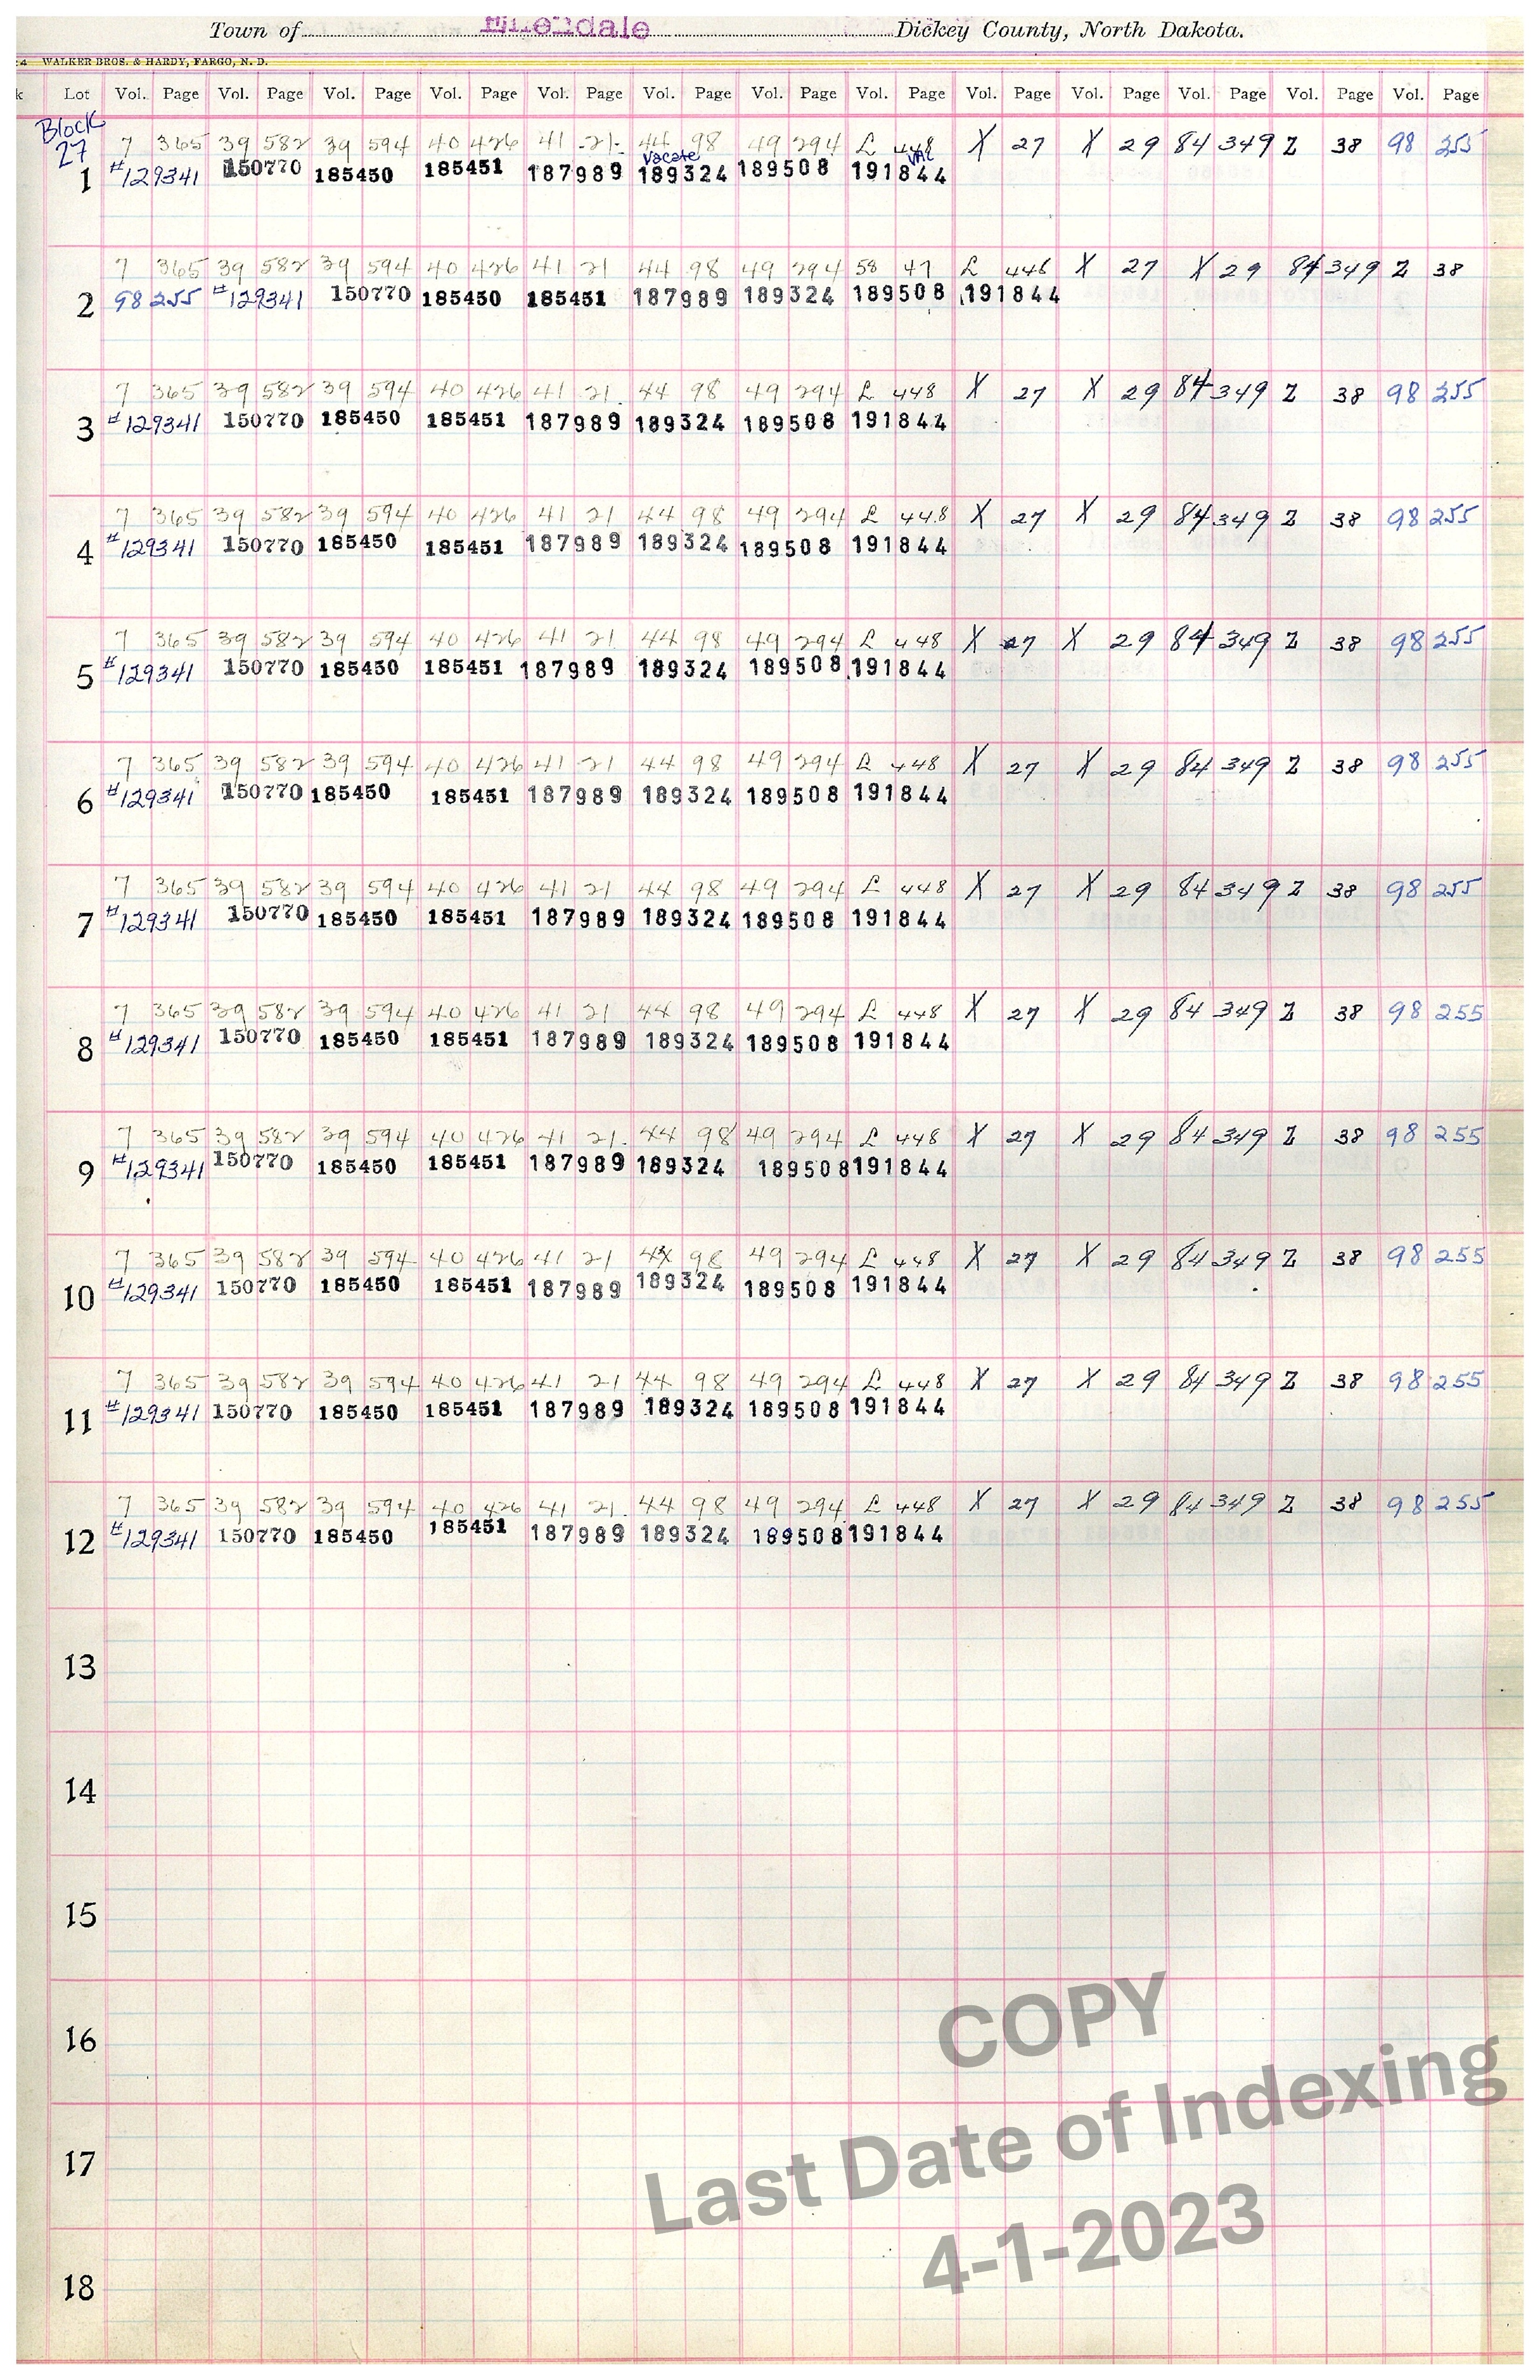 Town of Ellendale Dickey County, North Dakota.
WALKER BROS. & HARDY, FARGO, N. D.
k Lot Vol. Page Vol. Page Vol. Page Vol. Page Vol. Page Vol. Page Vol. Page Vol. Page Vol. Page Vol. Page Vol. Page Vol. Page Vol. Page
Block
27
7 365 39 582 39 594 40 426 41 21 44 98 49 294 L 448 X 27 X 29 84 349 Z 38 98 255
Vacate VAC
1 #129341 150770 185450 185451 187989 189324 189508 191844
7 365 39 582 39 594 40 426 41 21 44 98 49 294 58 47 L 448 X 27 X 29 84 349 Z 38
2 98 255 #129341 150770 185450 185451 187989 189324 189508 191844
7 365 39 582 39 594 40 426 41 21. 44 98 49 294 L 448 X 27 X 29 84 349 Z 38 98 255
3 #129341 150770 185450 185451 187989 189324 189508 191844
7 365 39 582 39 594 40 426 41 21 44 98 49 294 L 448 X 27 X 29 84 349 Z 38 98 255
4 #129341 150770 185450 185451 187989 189324 189508 191844
7 365 39 582 39 594 40 426 41 21 44 98 49 294 L 448 X 27 X 29 84 349 Z 38 98 255
5 #129341 150770 185450 185451 187989 189324 189508 191844
7 365 39 582 39 594 40 426 41 21 44 98 49 294 L 448 X 27 X 29 84 349 Z 38 98 255
6 #129341 150770 185450 185451 187989 189324 189508 191844
7 365 39 582 39 594 40 426 41 21 44 98 49 294 L 448 X 27 X 29 84 349 Z 38 98 255
7 #129341 150770 185450 185451 187989 189324 189508 191844
7 365 39 582 39 594 40 426 41 21 44 98 49 294 L 448 X 27 X 29 84 349 Z 38 98 255
8 #129341 150770 185450 185451 187989 189324 189508 191844
7 365 39 582 39 594 40 426 41 21. 44 98 49 294 L 448 X 27 X 29 84 349 Z 38 98 255
9 #129341 150770 185450 185451 187989 189324 189508 191844
7 365 39 582 39 594 40 426 41 21 44 98 49 294 L 448 X 27 X 29 84 349 Z 38 98 255
10 #129341 150770 185450 185451 187989 189324 189508 191844
7 365 39 582 39 594 40 426 41 21 44 98 49 294 L 448 X 27 X 29 84 349 Z 38 98 255
11 #129341 150770 185450 185451 187989 189324 189508 191844
7 365 39 582 39 594 40 426 41 21. 44 98 49 294 L 448 X 27 X 29 84 349 Z 38 98 255
12 #129341 150770 185450 185451 187989 189324 189508 191844
13
14
15
16
17
18
COPY
Last Date of Indexing
4-1-2023